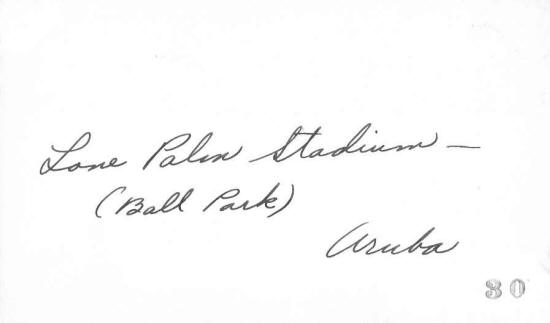 Lone Palm Stadium —
(Ball Park)
Aruba
30